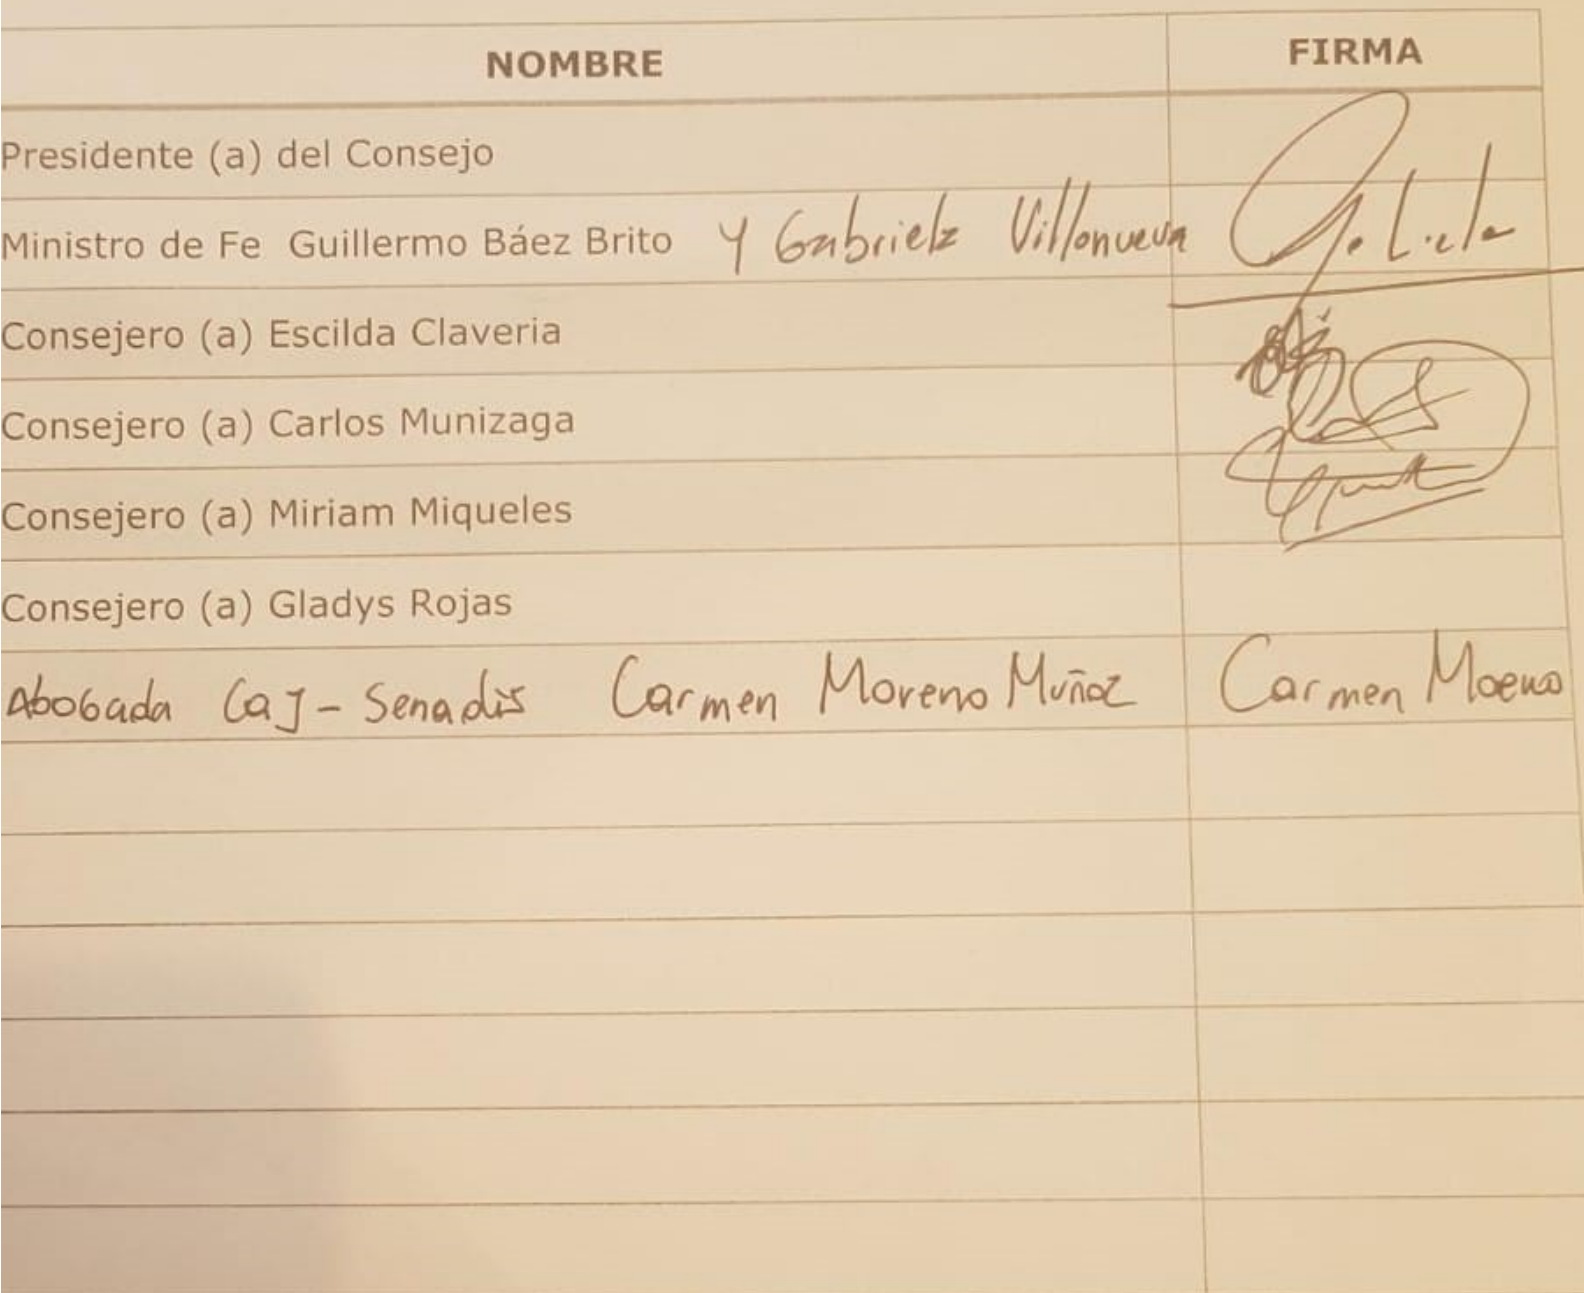 NOMBRE FIRMA
Presidente (a) del Consejo
Ministro de Fe Guillermo Báez Brito y Gabriela Villanueva
Consejero (a) Escilda Claveria
Consejero (a) Carlos Munizaga
Consejero (a) Miriam Miqueles
Consejero (a) Gladys Rojas
Abogada CAJ - Senadis Carmen Moreno Muñoz Carmen Moreno